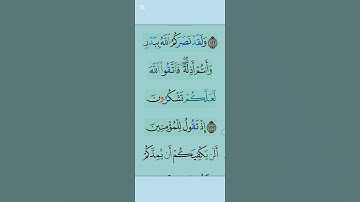 وَلَقَدْ نَصَرَكُمُ ٱللَّهُ بِبَدْرٍ
وَأَنتُمْ أَذِلَّةٌ ۖ فَٱتَّقُوا۟ ٱللَّهَ
لَعَلَّكُمْ تَشْكُرُونَ
إِذْ تَقُولُ لِلْمُؤْمِنِينَ
أَلَن يَكْفِيَكُمْ أَن يُمِدَّكُمْ